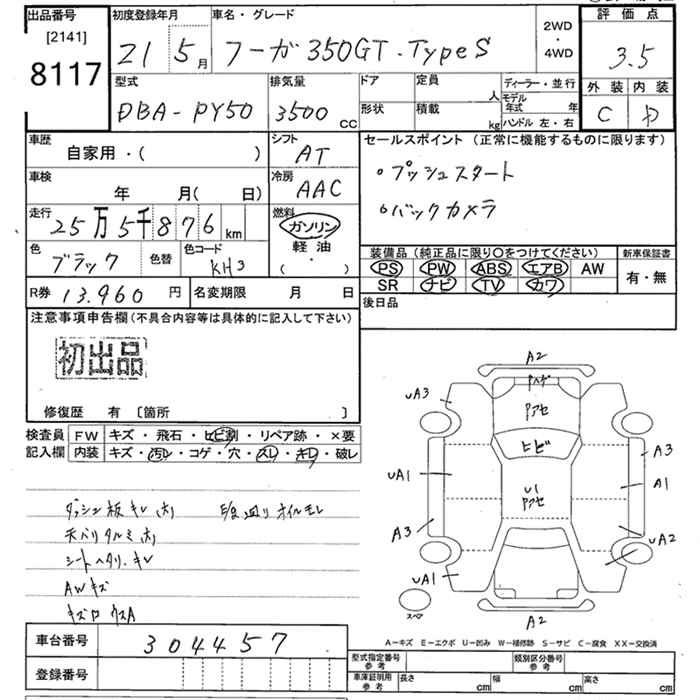 出品番号
[2141]
8117
初度登録年月
21 5月
車名・グレード
フーガ350GT・TypeS
2WD
・
4WD
評価点
3.5
外装 内装
C D
型式
DBA-PY50
排気量
3500 CC
ドア
形状
定員 人
積載 kg
ディーラー・並行
モデル年式 年
ハンドル 左・右
車歴
自家用・( )
シフト
AT
車検
年 月( 日)
冷房
AAC
走行
25万5千876 km
燃料
ガソリン
軽油
( ・ )
色
ブラック
色替
色コード
KH3
R券 13,960 円
名変期限 月 日
セールスポイント (正常に機能するものに限ります)
・プッシュスタート
・バックカメラ
装備品 (純正品に限り〇をつけてください)
PS PW ABS エアB AW
SR ナビ TV カワ
新車保証書
有・無
後日品
注意事項申告欄(不具合内容等は具体的に記入して下さい)
初出品
修復歴 有 〔箇所 〕
検査員
記入欄
FW キズ・飛石・ヒビ割・リペア跡・×要
内装 キズ・汚レ・コゲ・穴・スレ・キレ・破レ
ダッシュ板キレ
天バリタルミ
シートヘタリ、キレ
AWキズ
A2
ハゲ
UA3
アセ
ヒビ
A3
UA1
U1
アセ
A1
A3
UA2
UA1
スペア
A2
A-キズ E-エクボ U-凹み W-補修跡 S-サビ C-腐食 XX-交換済
車台番号
304457
登録番号
型式指定番号
参考
類別区分番号
参考
車庫証明用
参考
長さ cm
幅 cm
高さ cm